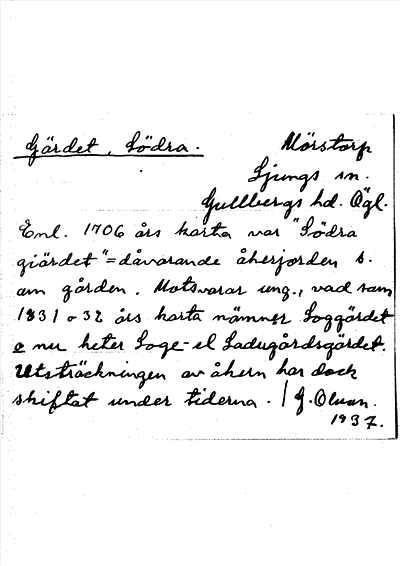 Gärdet, Södra.
Mörstorp
Ljungs sn.
Gullbergs hd. Ögl.
Enl. 1706 års karta var "Södra
giärdet" = dåvarande åkerjorden s.
om gården. Motsvarar ung., vad som
1831 o 32 års karta nämner Loggärdet
o nu heter Loge- el Ladugårdsgärdet.
Utsträckningen av åkern har dock
skiftat under tiderna. / G. Olsson.
1937.